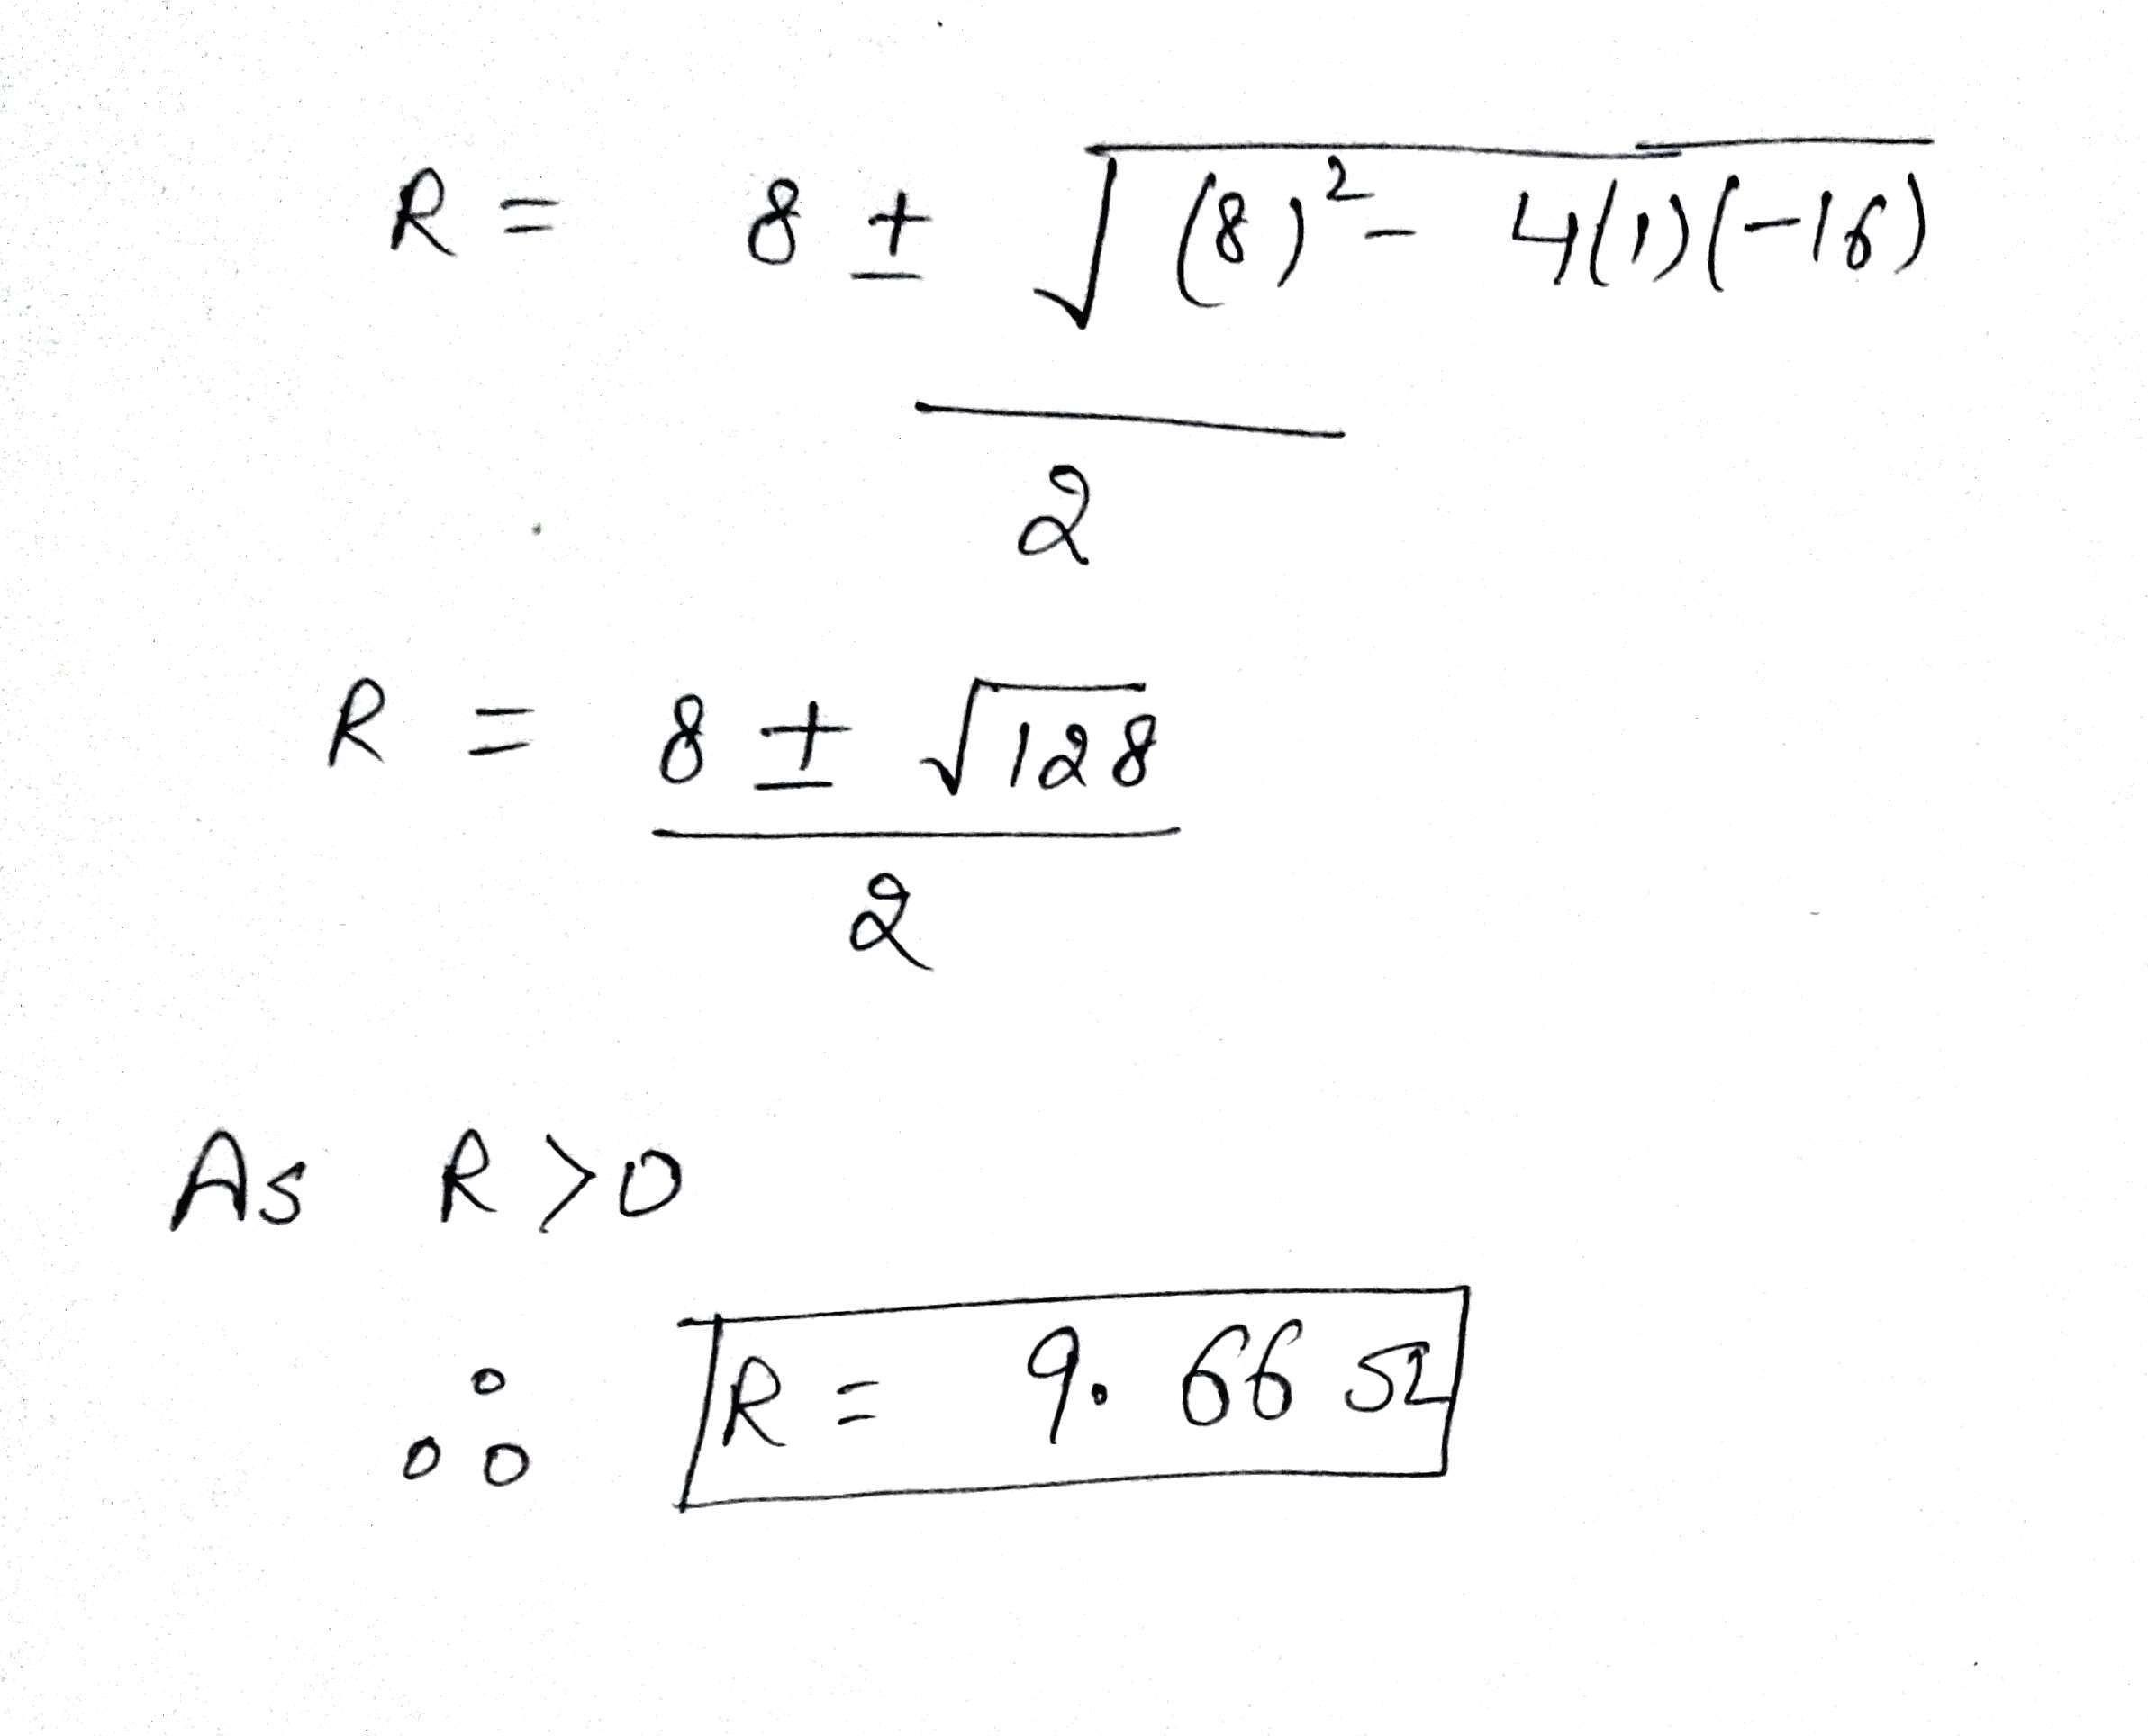 R = 8 ± √(8)² - 4(1)(-16)
2
R = 8 ± √128
2
As R > 0
∴ R = 9.66 Ω